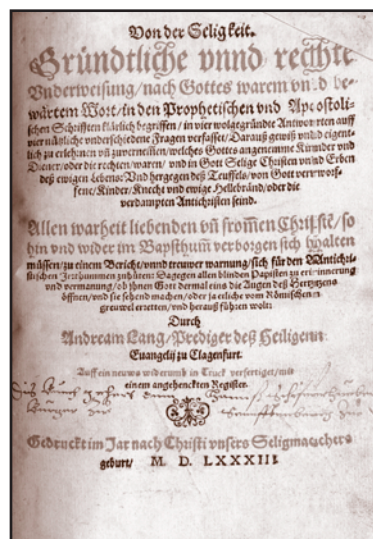 Von der Seligkeit.
Gründtliche vnnd rechte
Vnderweisung / nach Gottes warem vnd be-
wärtem Wort / in den Prophetischen vnd Apostoli-
schen Schrifften klärlich begriffen / in vier wolgegründte Antworten auff
vier nützliche vnderschiedene Fragen verfasset / Darauß gewiß vnd eigent-
lich zu erlehrnen vñ zuvernemen / welches Gottes angenemme Kinder vnd
Diener / oder die rechten / waren / vnd in Gott Selige Christen vnnd Erben
deß ewigen Lebens: Vnd hergegen deß Teuffels / von Gott verworf-
fene / Kinder / Knecht vnd ewige Hellebränd / oder die
verdampten Antichristen seind.
Allen warheit liebenden vñ frommen Christē / so
hin vnd wider im Bapsthumb verborgen sich halten
müssen / zu einem Bericht / vnnd treuwer warnung / sich für den Antichri-
stischen Irrthummen zuhüten: Dagegen allen blinden Papisten zu erinnerung
und vermanung / ob ihnen Gott dermal eins die Augen deß Hertzens
öffnen / vnd sie sehend machen / oder ja etliche vom Römischen
greuwel erretten / vnd herauß führen wolt:
Durch
Andream Lang / Prediger deß Heiligenn
Euangelij zu Clagenfurt.
Auff ein neuws widerumb in Truck verfertiget / mit
einem angehenckten Register.
Gedruckt im Jar nach Christi vnsers Seligmachers
geburt / M. D. LXXXIII.